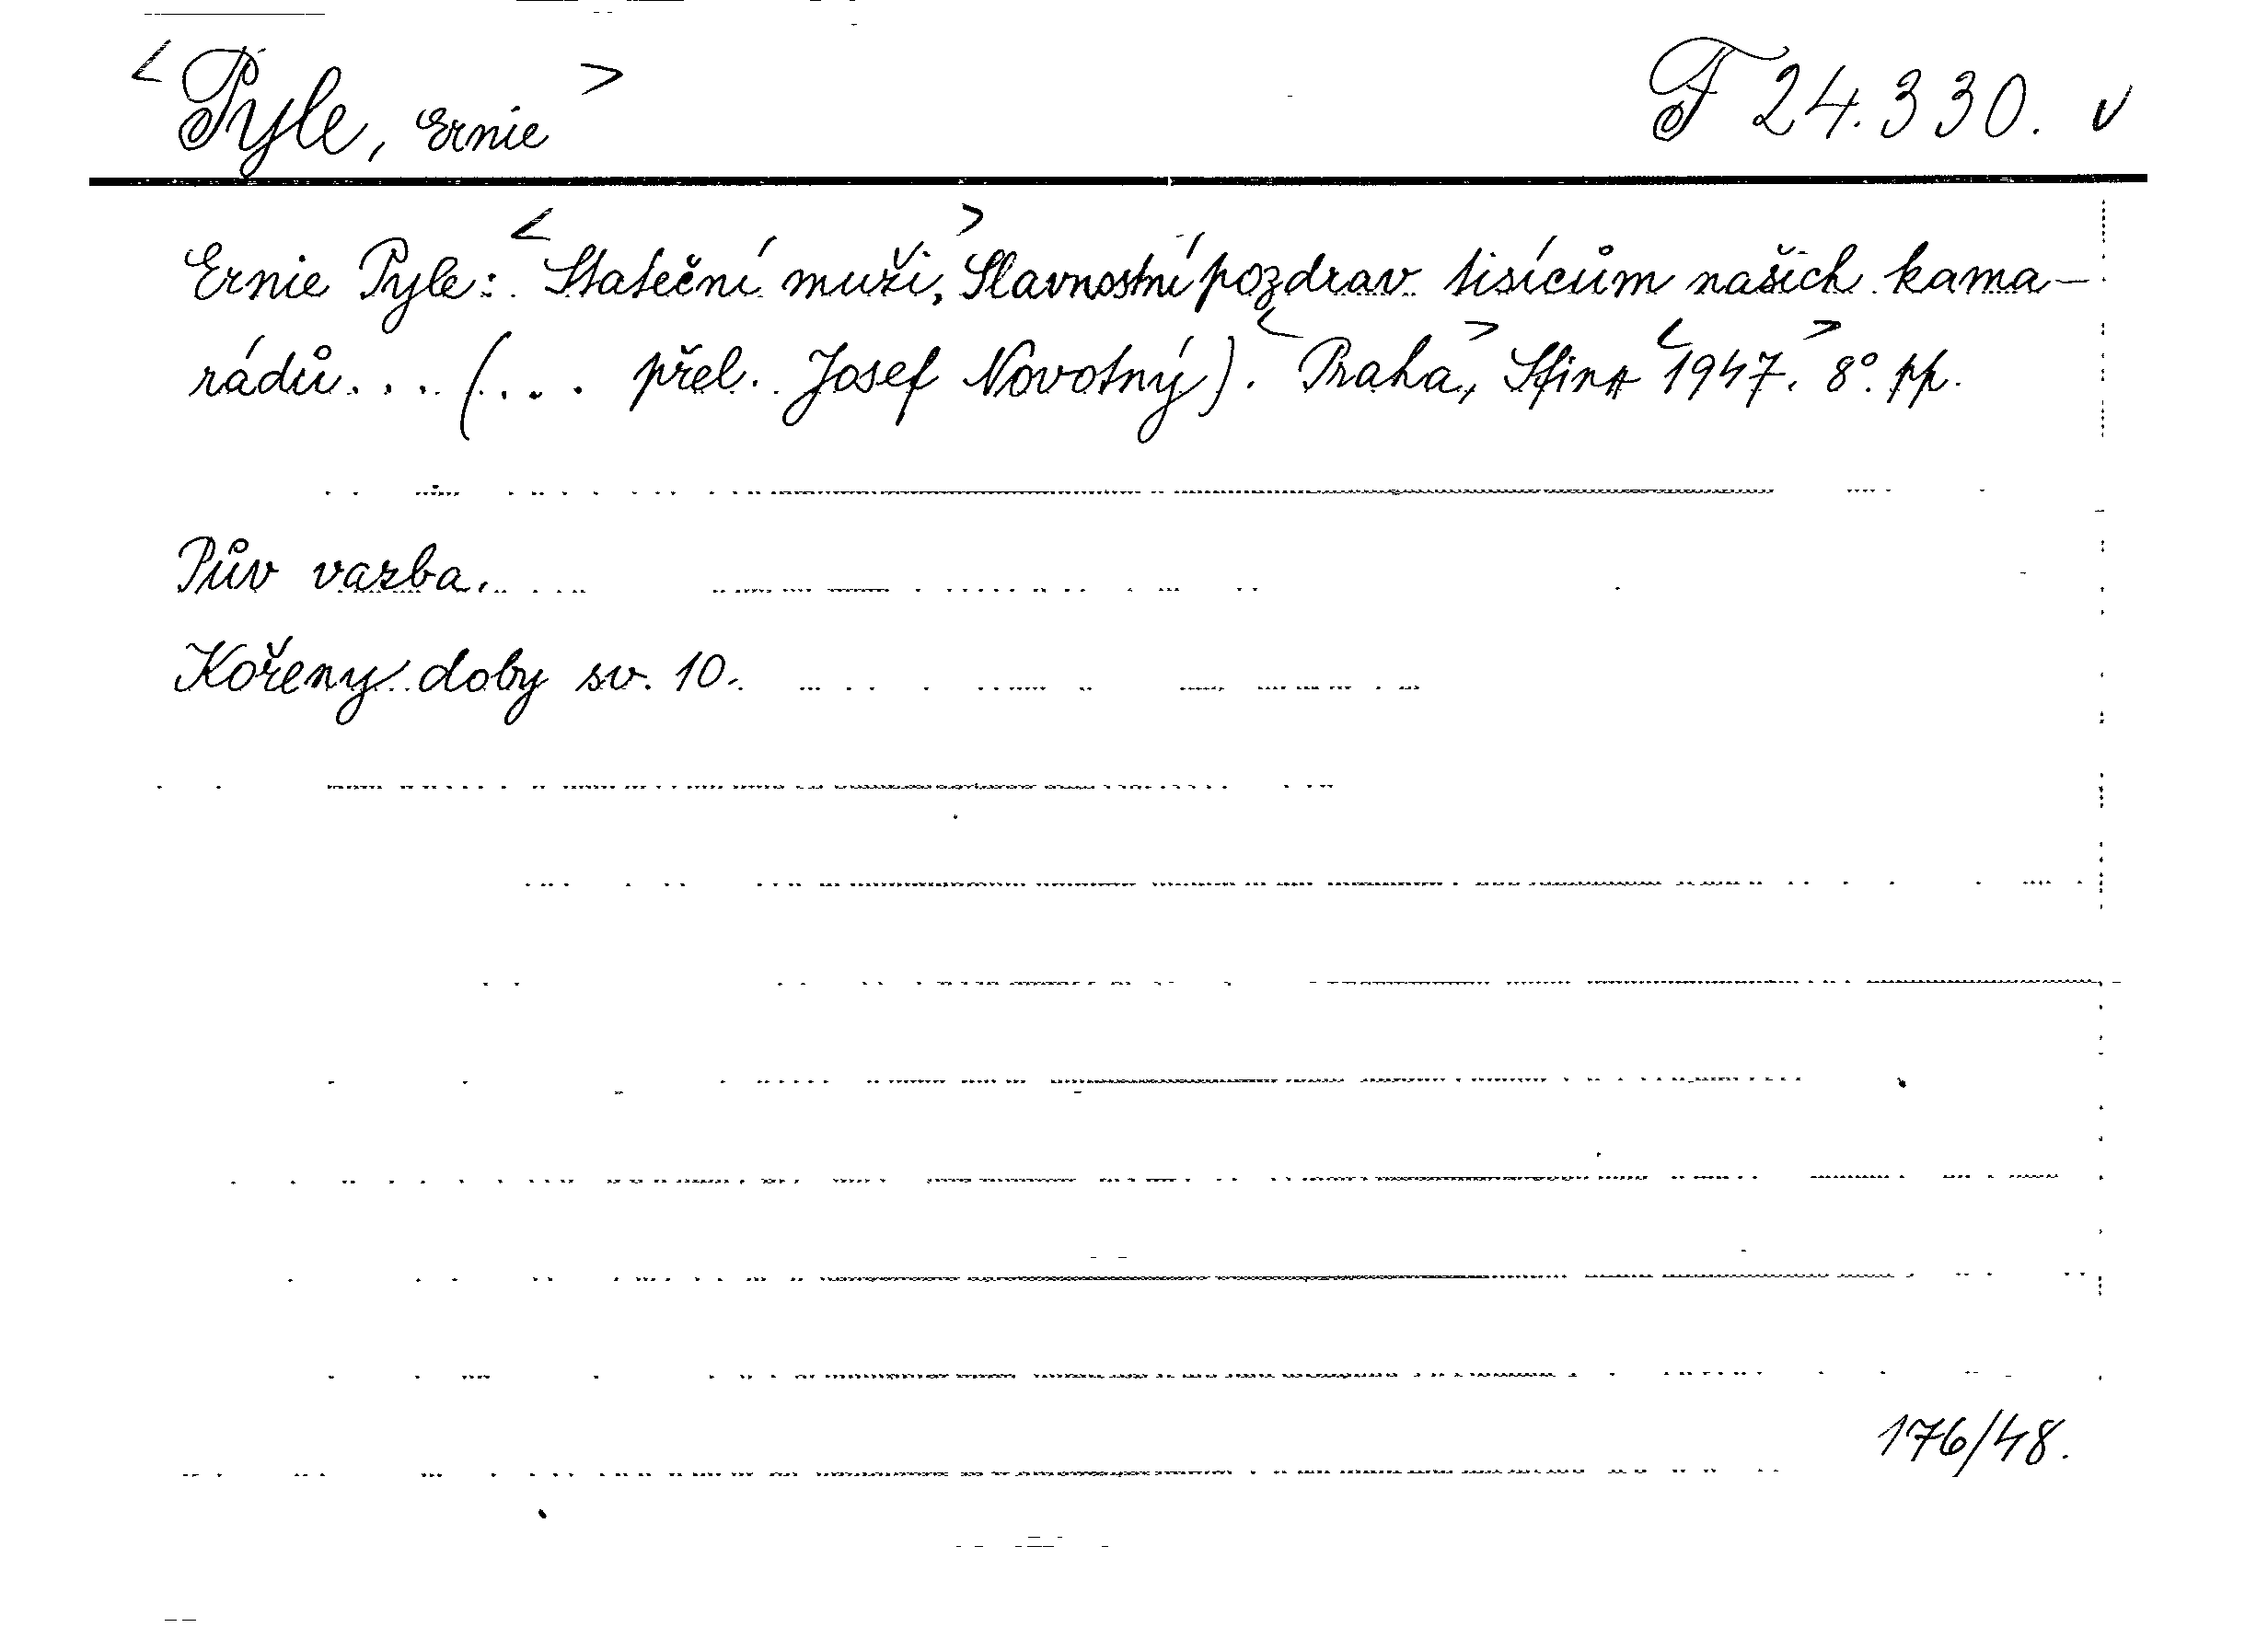 <Pyle, Ernie> F 24.330. v
Ernie Pyle: <Stateční muži,> Slavnostní pozdrav tisícům našich kama-
rádů... (... přel. Josef Novotný). <Praha,> Sfinx <1947.> 8°. pp.
Pův vazba.
Kořeny doby sv. 10.
176/48.